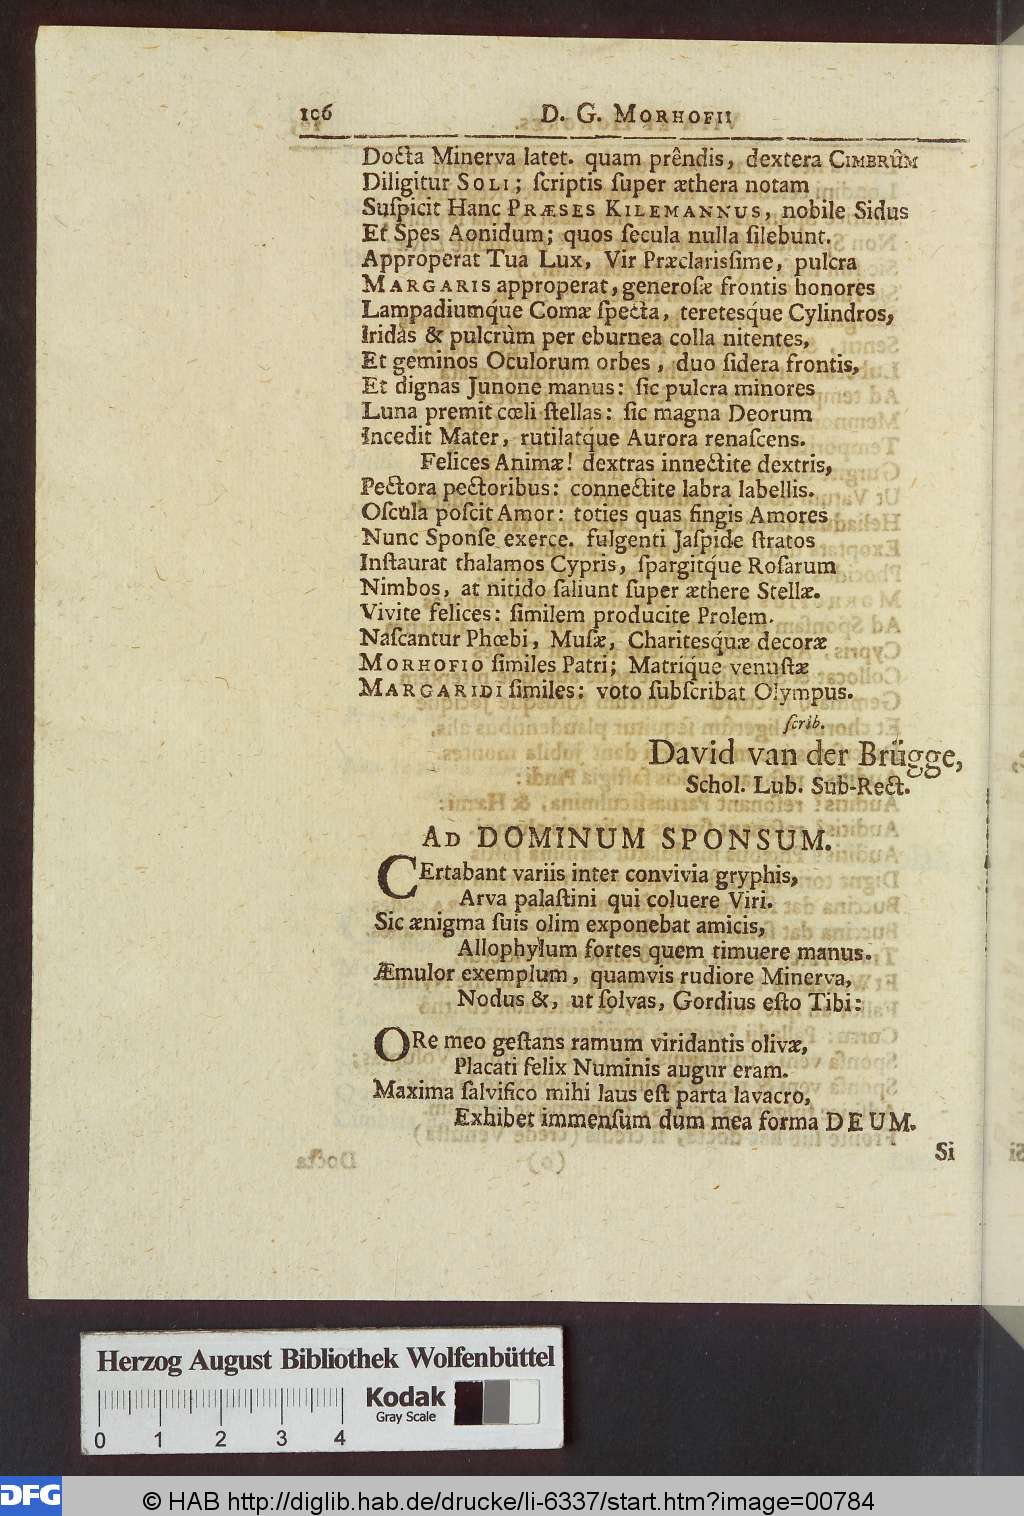 106 D. G. MORHOFII
Docta Minerva latet. quam prêndis, dextera CIMBRÛM
Diligitur SOLI; ſcriptis ſuper æthera notam
Suſpicit Hanc PRÆSES KILEMANNUS, nobile Sidus
Et Spes Aonidum; quos ſecula nulla ſilebunt.
Approperat Tua Lux, Vir Præclarisſime, pulcra
MARGARIS approperat, generoſæ frontis honores
Lampadiumq́ue Comæ ſpecta, teretesq́ue Cylindros,
Iridàs & pulcrùm per eburnea colla nitentes,
Et geminos Oculorum orbes, duo ſidera frontis,
Et dignas Junone manus: ſic pulcra minores
Luna premit cœli ſtellas: ſic magna Deorum
Incedit Mater, rutilatq́ue Aurora renaſcens.
Felices Animæ! dextras innectite dextris,
Pectora pectoribus: connectite labra labellis.
Oſcula poſcit Amor: toties quas fingis Amores
Nunc Sponſe exerce. fulgenti Jaſpide ſtratos
Inſtaurat thalamos Cypris, ſpargitq́ue Roſarum
Nimbos, at nitido ſaliunt ſuper æthere Stellæ.
Vivite felices: ſimilem producite Prolem.
Naſcantur Phœbi, Muſæ, Charitesq́uæ decoræ
MORHOFIO ſimiles Patri; Matriq́ue venuſtæ
MARGARIDI ſimiles: voto ſubſcribat Olympus.
ſcrib.
David van der Brügge,
Schol. Lub. Sub-Rect.
AD DOMINUM SPONSUM.
CErtabant variis inter convivia gryphis,
Arva palaſtini qui coluere Viri.
Sic ænigma ſuis olim exponebat amicis,
Allophylum fortes quem timuere manus.
Æmulor exemplum, quamvis rudiore Minerva,
Nodus &, ut ſolvas, Gordius eſto Tibi:
ORe meo geſtans ramum viridantis olivæ,
Placati felix Numinis augur eram.
Maxima ſalvifico mihi laus eſt parta lavacro,
Exhibet immenſum dum mea forma DEUM.
Si
Herzog August Bibliothek Wolfenbüttel
Kodak
Gray Scale
0 1 2 3 4
DFG © HAB http://diglib.hab.de/drucke/li-6337/start.htm?image=00784